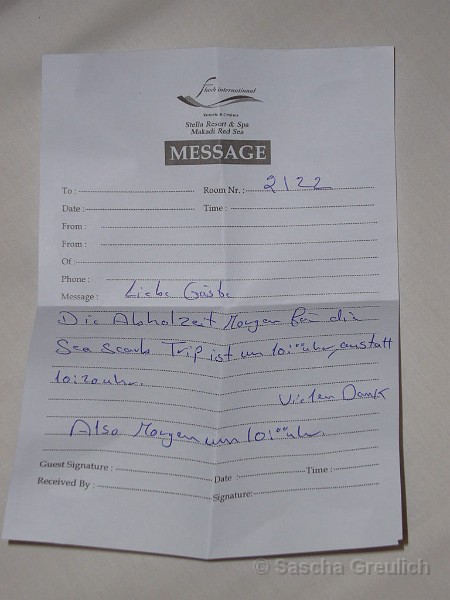 flash international
Resorts & Cruises
Stella Resort & Spa
Makadi Red Sea
MESSAGE
To : Room Nr. : 2122
Date : Time :
From :
From :
Of :
Phone :
Message : Liebe Gäste
Die Abholzeit Morgen für die
Sea Scoub Trip ist um 10:00 uhr, anstatt
10:20 uhr.
Vielen Dank
Also Morgen um 10:00 uhr.
Guest Signature : Date : Time :
Received By : Signature:
© Sascha Greulich